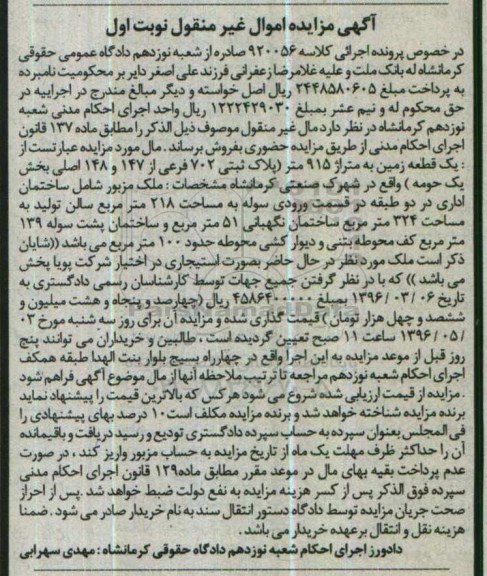 آگهی مزایده اموال غیر منقول نوبت اول
در خصوص پرونده اجرائی کلاسه ۹۲۰۰۵۶ صادره از شعبه نوزدهم دادگاه عمومی حقوقی
کرمانشاه له بانک ملت و علیه غلامرضا زعفرانی فرزند علی اصغر دایر بر محکومیت نامبرده
به پرداخت مبلغ ۲۴۴۸۵۸۰۶۰۵ ریال اصل خواسته و دیگر مبالغ مندرج در اجراییه در
حق محکوم له و نیم عشر بمبلغ ۱۲۲۲۴۲۹۰۳۰ ریال واحد اجرای احکام مدنی شعبه
نوزدهم کرمانشاه در نظر دارد مال غیر منقول موصوف ذیل الذکر را مطابق ماده ۱۳۷ قانون
اجرای احکام مدنی از طریق مزایده حضوری بفروش برساند . مال مورد مزایده عبارتست از
: یک قطعه زمین به متراژ ۹۱۵ متر (پلاک ثبتی ۷۰۲ فرعی از ۱۴۷ و ۱۴۸ اصلی بخش
یک حومه ) واقع در شهرک صنعتی کرمانشاه مشخصات : ملک مزبور شامل ساختمان
اداری در دو طبقه در قسمت ورودی سوله به مساحت ۲۱۸ متر مربع سالن تولید به
مساحت ۳۲۴ متر مربع ساختمان نگهبانی ۵۱ متر مربع و ساختمان پشت سوله ۱۳۹
متر مربع کف محوطه بتنی و دیوار کشی محوطه حدود ۱۰۰ متر مربع می باشد ((شایان
ذکر است ملک مورد نظر در حال حاضر بصورت استیجاری در اختیار شرکت پویا پخش
می باشد )) که با در نظر گرفتن جمیع جهات توسط کارشناسان رسمی دادگستری به
تاریخ ۰۶ / ۰۳ / ۱۳۹۶ بمبلغ ۴۵۸۶۴۰۰۰۰۰ ریال (چهارصد و پنجاه و هشت میلیون و
ششصد و چهل هزار تومان ) قیمت گذاری شده و مزایده آن برای روز سه شنبه مورخ ۰۳
/ ۰۵ / ۱۳۹۶ ساعت ۱۱ صبح تعیین گردیده است ، طالبین و خریداران می توانند پنج
روز قبل از موعد مزایده به این اجرا واقع در چهارراه بسیج بلوار بنت الهدا طبقه همکف
اجرای احکام شعبه نوزدهم مراجعه تا ترتیب ملاحظه آنها از مال موضوع آگهی فراهم شود
. مزایده از قیمت ارزیابی شده شروع می شود هر کس که بالاترین قیمت را پیشنهاد نماید
برنده مزایده شناخته خواهد شد و برنده مزایده مکلف است ۱۰ درصد بهای پیشنهادی را
فی المجلس بعنوان سپرده به حساب سپرده دادگستری تودیع و رسید دریافت و باقیمانده
آن را حداکثر ظرف مهلت یک ماه از تاریخ مزایده به حساب مزبور واریز کند ، در صورت
عدم پرداخت بقیه بهای مال در موعد مقرر مطابق ماده ۱۲۹ قانون اجرای احکام مدنی
سپرده فوق الذکر پس از کسر هزینه مزایده به نفع دولت ضبط خواهد شد .پس از احراز
صحت جریان مزایده توسط دادگاه دستور انتقال سند به نام خریدار صادر می شود . ضمنا
هزینه نقل و انتقال بر عهده خریدار می باشد .
دادورز اجرای احکام شعبه نوزدهم دادگاه حقوقی کرمانشاه : مهدی سهرابی